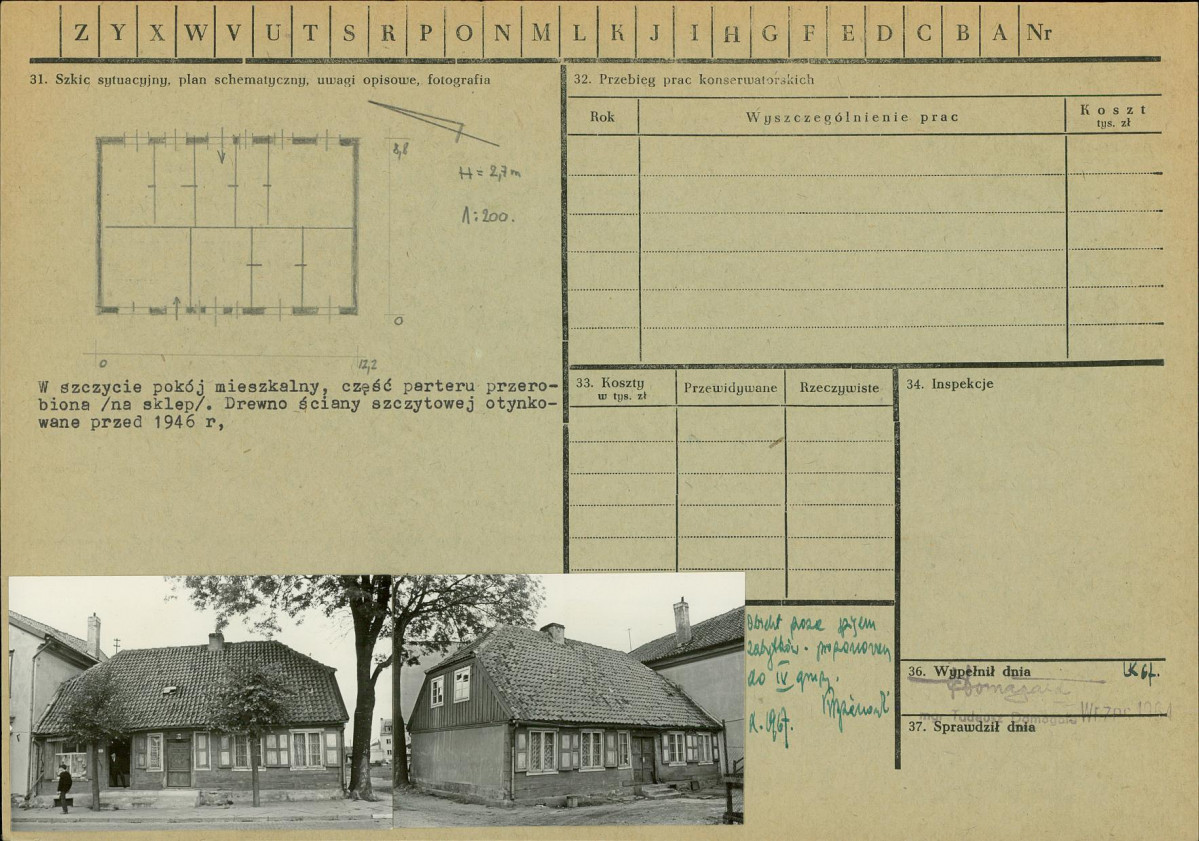 Z Y X W V U T S R P O N M L K J I H G F E D C B A Nr
31. Szkic sytuacyjny, plan schematyczny, uwagi opisowe, fotografia
8,8
H = 2,7 m
1:200.
0
0
12,2
W szczycie pokój mieszkalny, część parteru przero-
biona /na sklep/. Drewno ściany szczytowej otynko-
wane przed 1946 r,
32. Przebieg prac konserwatorskich
Rok
Wyszczególnienie prac
Koszt
tys. zł
33. Koszty
w tys. zł
Przewidywane
Rzeczywiste
34. Inspekcje
Obiekt poza
zabytków.
do IV grupy.
1967.
36. Wypełnił dnia
67.
mgr Tadeusz
37. Sprawdził dnia